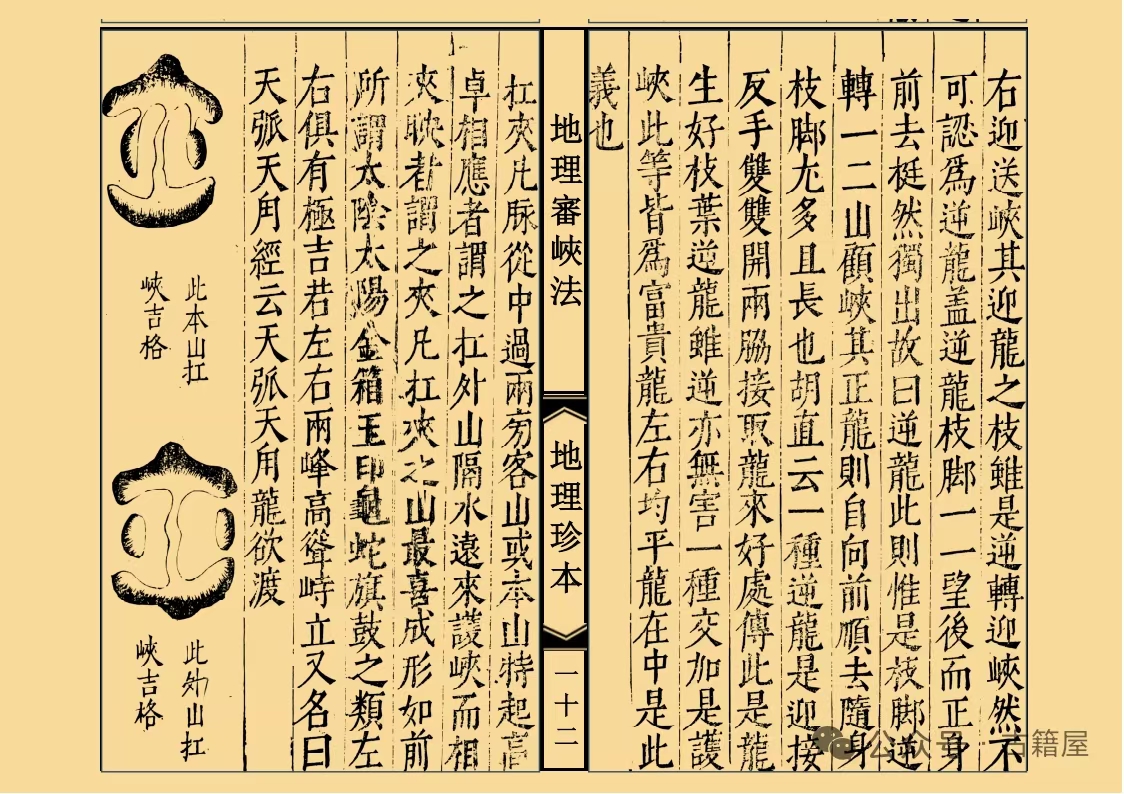 右迎送峽其迎龍之枝雖是逆轉迎峽然不
可認爲逆龍盖逆龍枝脚一一望後而正身
前去挺然獨出故曰逆龍此則惟是枝脚逆
轉一二山顧峽其正龍則自向前順去隨身
枝脚尤多且長也胡直云一種逆龍是迎接
反手雙雙開兩脇接取龍來好處傳此是龍
生好枝葉逆龍雖逆亦無害一種交加是護
峽此等皆爲富貴龍左右均平龍在中是此
義也
地理審峽法
地理珍本
一十二
扛夾凡脈從中過兩旁客山或本山特起高
卓相應者謂之扛外山隔水遠來護峽而相
夾映者謂之夾凡扛夾之山最喜成形如前
所謂太陰太陽金箱玉印龜蛇旗鼓之類左
右俱有極吉若左右兩峰高聳峙立又名曰
天弧天角經云天弧天角龍欲渡
此本山扛
峽吉格
此外山扛
峽吉格
公众号·古籍屋